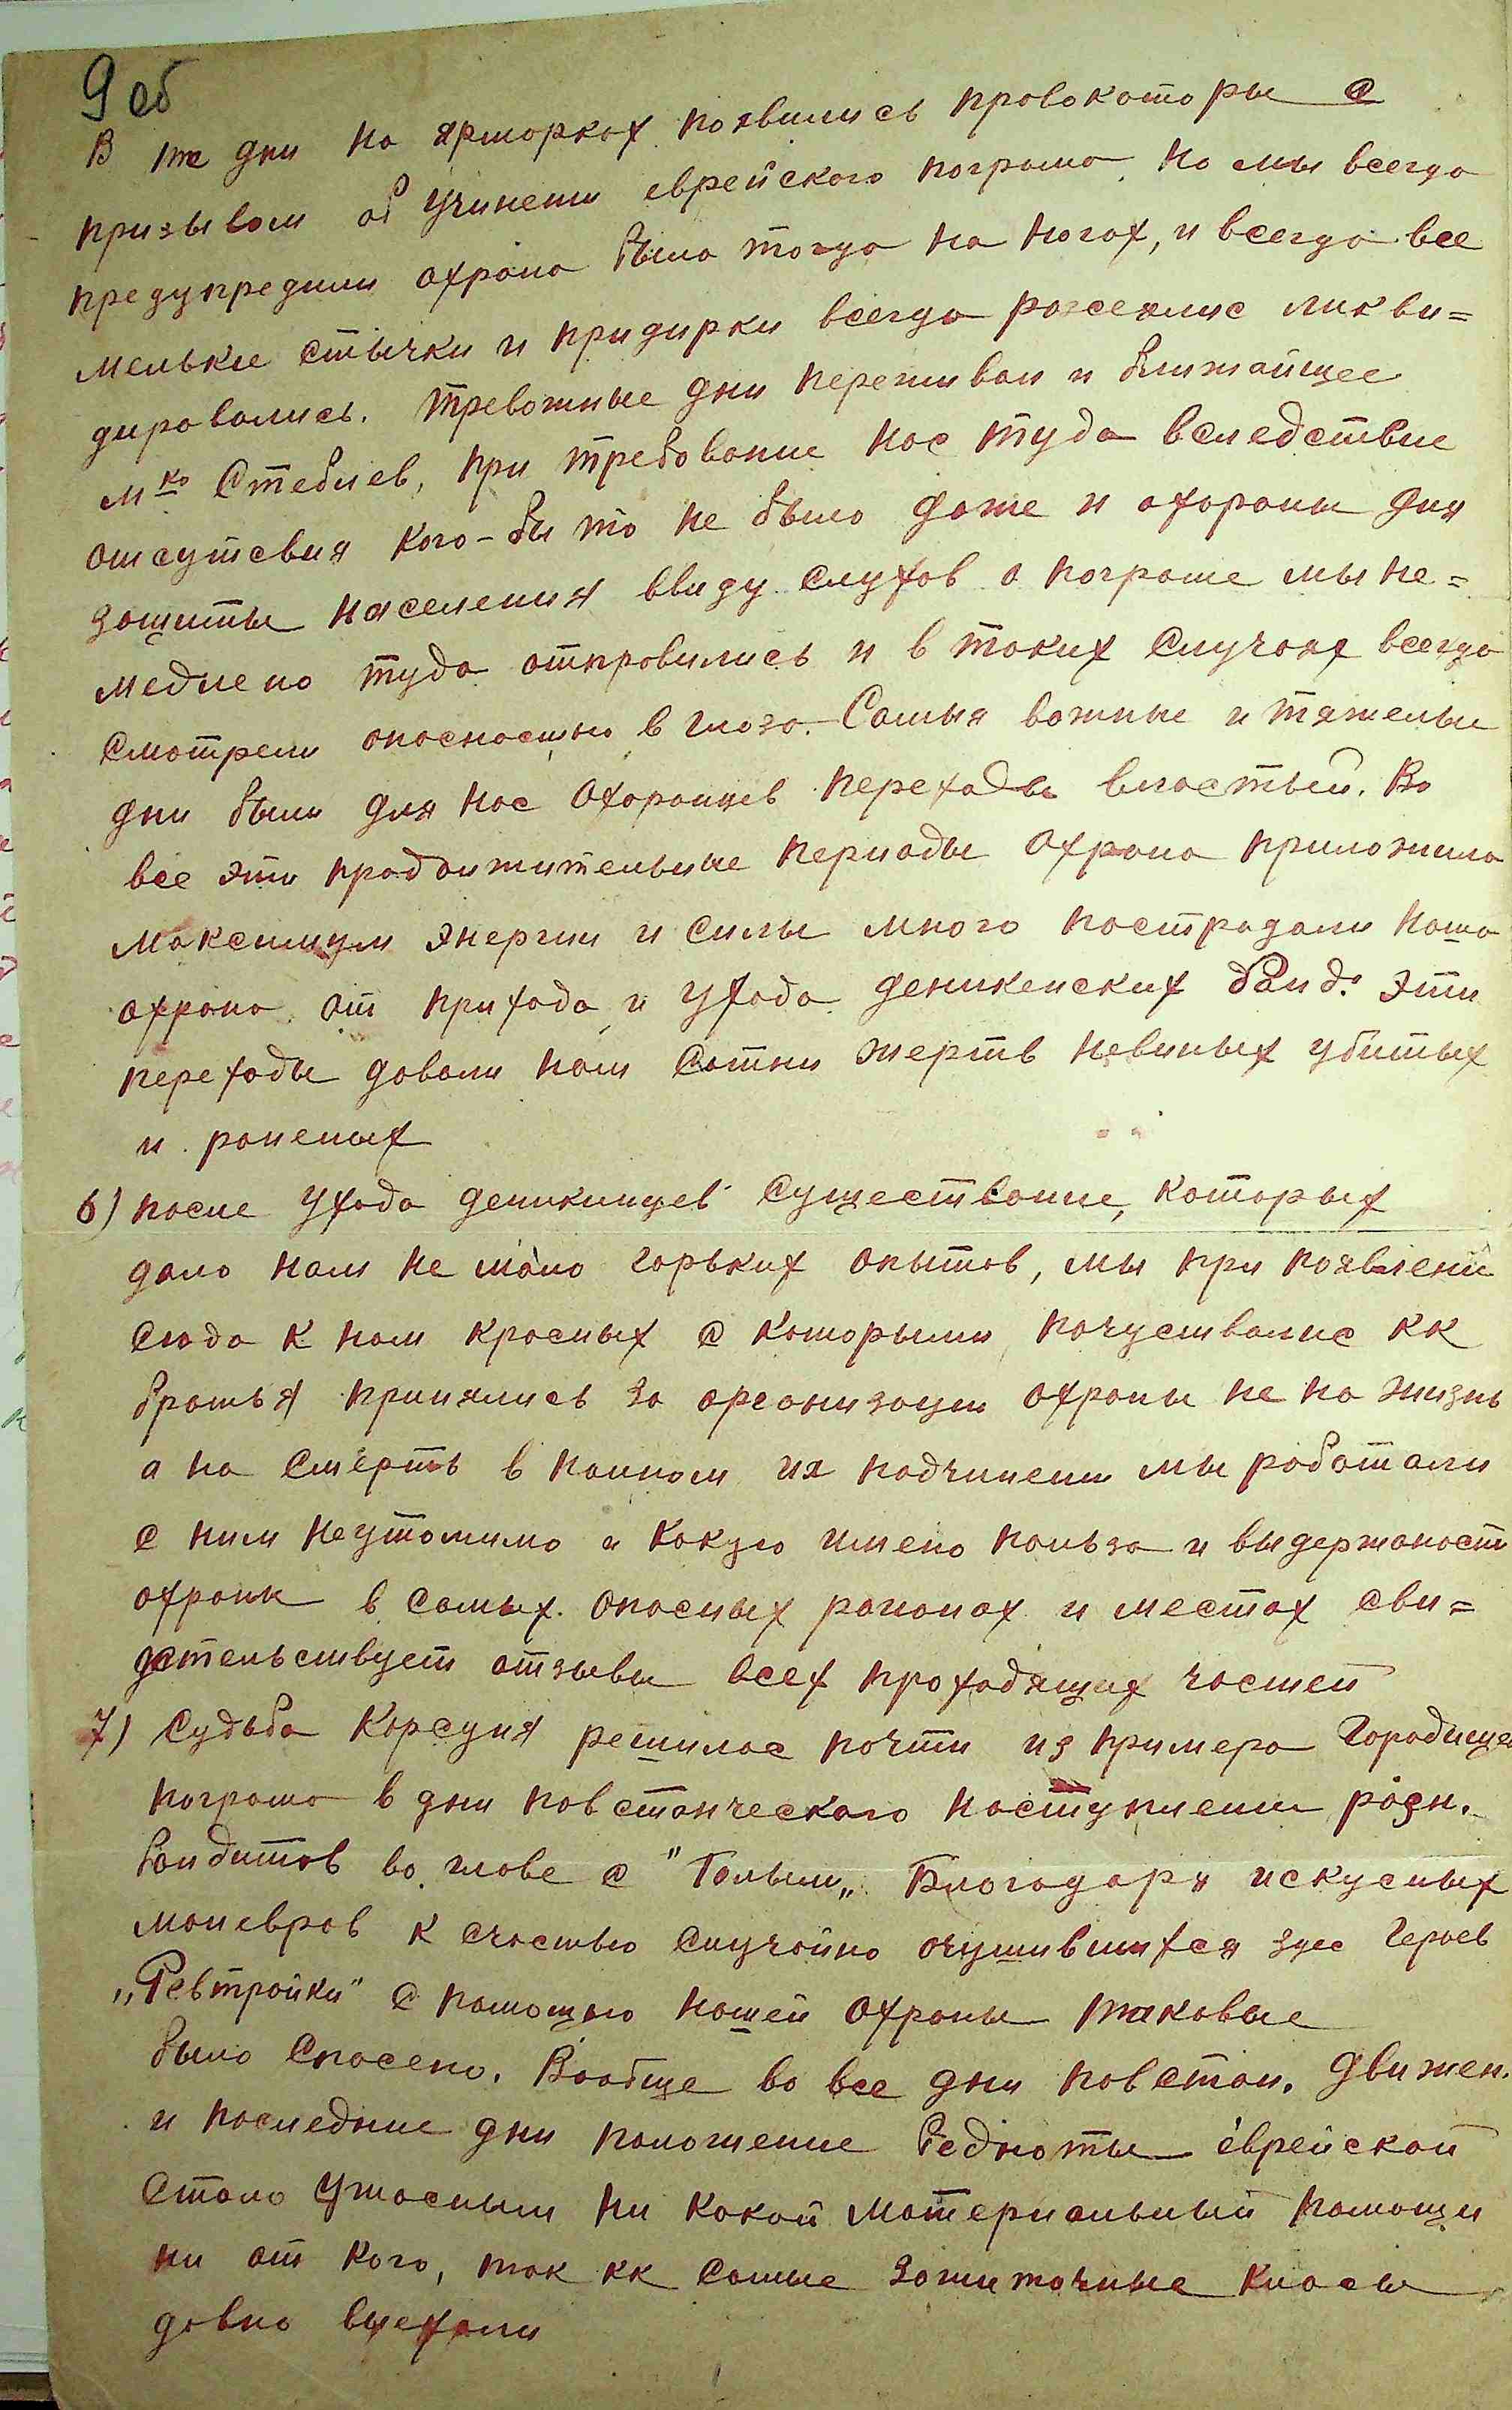 9 об
В те дни на ярморках появились провокаторы с
призывом об учинении еврейского погрома, но мы всегда
предупредили охрана была тогда на ногах, и всегда все
мелькие стычки и придирки всегда рассеялис ликви=
дировались. Тревожные дни переживал и ближайщее
м-ко Стеблев, при требование нас туда вследствие
отсутсвия кого-бы то не было даже и охораны для
защиты населения ввиду слухов о погроме мы не=
медлено туда отправились и в таких случаях всегда
смотрели опасностью в глаза. Самыя важные и тяжелые
дни были для нас охоранцев переходы властьей. Во
все эти продолжительные периоды охрана приложила
максимум энергии и силы много пострадали наша
охрана от прихода и ухода деникенских банд. Эти
переходы давали нам сотни жертв невиных убитых
и раненых
6) после ухода деникинцев существование, которых
дало нам не мало горьких опытов, мы при появлени
сюда к нам красных с которыми почуствовалис кк
братья принялись за организации охраны не на жизнь
а на смерть в полном их подчинени мы работали
с ним неутомимо и какую имено польза и выдержаность
охраны в самых опасных районах и местах сви=
детельствует отзывы всех проходящих частей
7) Судьба Корсуня решилас почти из примера Городищен
погрома в дни повстанческого наступлении разн.
бандитов во главе с "Голым„ Благодаря искусных
маневров к счастью случайно очутившихся здес героев
„Ревтройки" с помощью нашей охраны таковые
было спасено. Вообще во все дни повстан. движен.
и последние дни положение бедноты еврейской
стало ужасным ни какой материальный помощи
ни от кого, так кк самые зажиточные класы
давно выехали